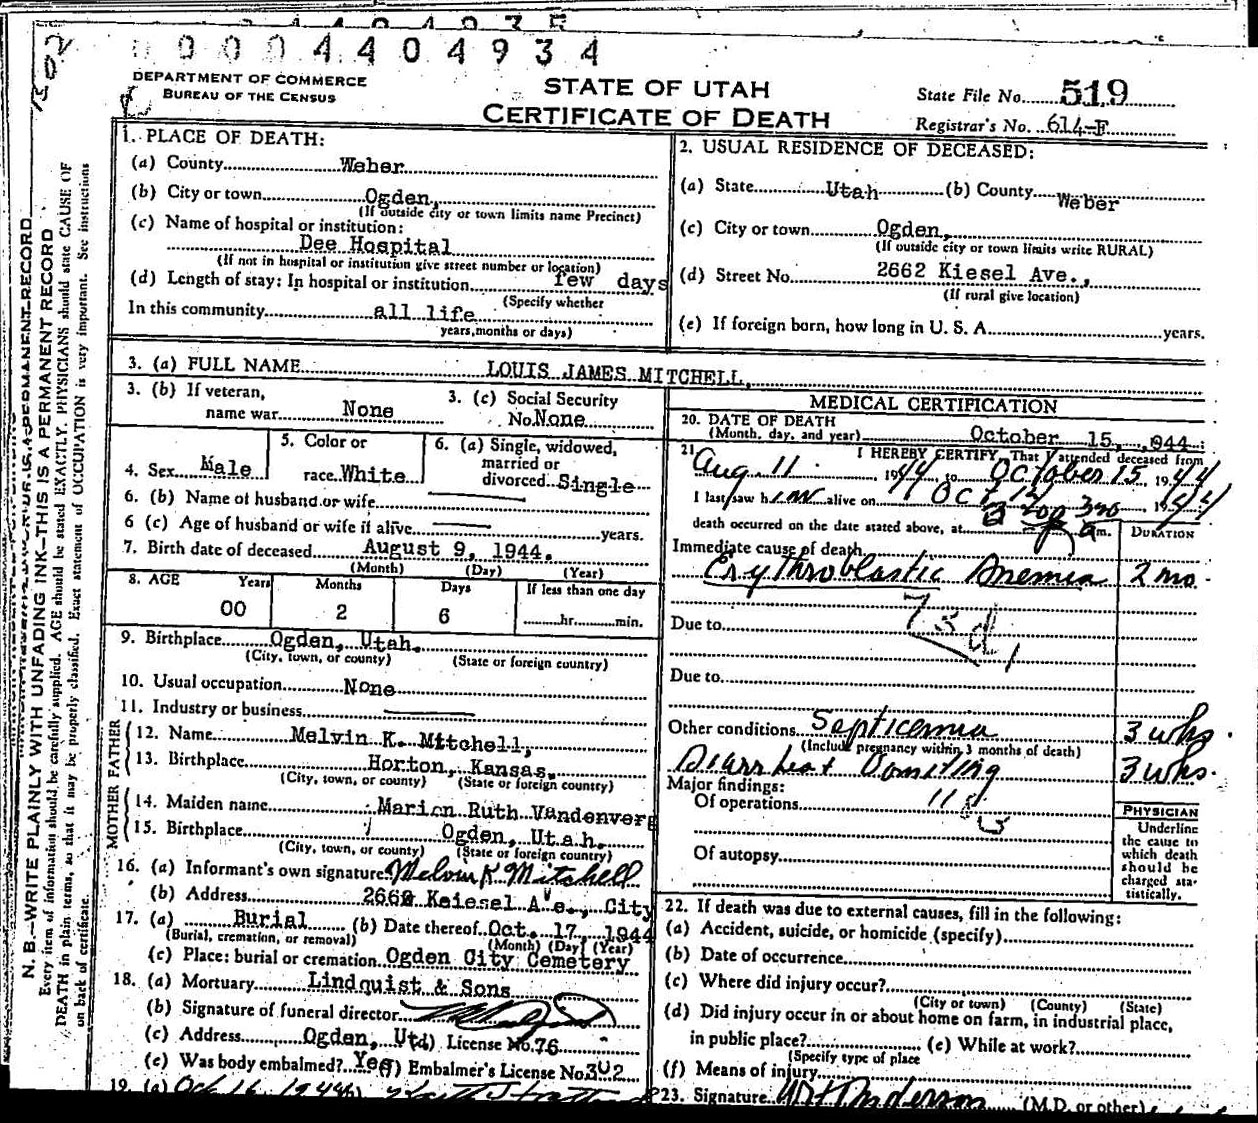 00004404934
DEPARTMENT OF COMMERCE
BUREAU OF THE CENSUS
STATE OF UTAH
CERTIFICATE OF DEATH
State File No. 519
Registrar's No. 614-F
1. PLACE OF DEATH:
(a) County Weber
(b) City or town Ogden,
(If outside city or town limits name Precinct)
(c) Name of hospital or institution:
Dee Hospital
(If not in hospital or institution give street number or location)
(d) Length of stay: In hospital or institution few days
(Specify whether
In this community all life
years, months or days)
2. USUAL RESIDENCE OF DECEASED:
(a) State Utah (b) County Weber
(c) City or town Ogden,
(If outside city or town limits write RURAL)
(d) Street No. 2662 Kiesel Ave.,
(If rural give location)
(e) If foreign born, how long in U. S. A. years.
3. (a) FULL NAME LOUIS JAMES MITCHELL,
3. (b) If veteran, name war None
3. (c) Social Security No. None
4. Sex Male
5. Color or race White
6. (a) Single, widowed, married or divorced Single
6. (b) Name of husband or wife
6 (c) Age of husband or wife if alive years.
7. Birth date of deceased August 9, 1944.
(Month) (Day) (Year)
8. AGE Years Months Days If less than one day
00 2 6 hr. min.
9. Birthplace Ogden, Utah.
(City, town, or county) (State or foreign country)
10. Usual occupation None
11. Industry or business
FATHER
12. Name Melvin K. Mitchell,
13. Birthplace Horton, Kansas.
(City, town, or county) (State or foreign country)
MOTHER
14. Maiden name Marion Ruth Vandenverg
15. Birthplace Ogden, Utah.
(City, town, or county) (State or foreign country)
16. (a) Informant's own signature Melvin K Mitchell
(b) Address 2662 Keiesel Ave., City
17. (a) Burial (b) Date thereof Oct. 17, 1944
(Burial, cremation, or removal) (Month) (Day) (Year)
(c) Place: burial or cremation Ogden City Cemetery
18. (a) Mortuary Lindquist & Sons
(b) Signature of funeral director
(c) Address Ogden, Ut (d) License No. 76
(e) Was body embalmed? Yes (f) Embalmer's License No. 302
19. (a) Oct 16, 1944 (b)
MEDICAL CERTIFICATION
20. DATE OF DEATH
(Month, day, and year) October 15, 1944
21. I HEREBY CERTIFY, That I attended deceased from
Aug 11 1944 to October 15, 1944
I last saw him alive on Oct 14 1944
death occurred on the date stated above, at 320 a m. DURATION
Immediate cause of death
Erythroblastic Anemia 2 mo.
73d
Due to
Due to
Other conditions Septicemia 3 wks.
(Include pregnancy within 3 months of death)
Diarrhea + Vomiting 3 wks.
Major findings:
Of operations
Of autopsy
PHYSICIAN
Underline
the cause to
which death
should be
charged sta-
tistically.
22. If death was due to external causes, fill in the following:
(a) Accident, suicide, or homicide (specify)
(b) Date of occurrence
(c) Where did injury occur?
(City or town) (County) (State)
(d) Did injury occur in or about home on farm, in industrial place,
in public place? (e) While at work?
(Specify type of place
(f) Means of injury
23. Signature Anderson (M.D. or other)
N. B.—WRITE PLAINLY WITH UNFADING INK—THIS IS A PERMANENT RECORD
Every item of information should be carefully supplied. AGE should be stated EXACTLY. PHYSICIANS should state CAUSE OF
DEATH in plain terms, so that it may be properly classified. Exact statement of OCCUPATION is very important. See instructions
on back of certificate.